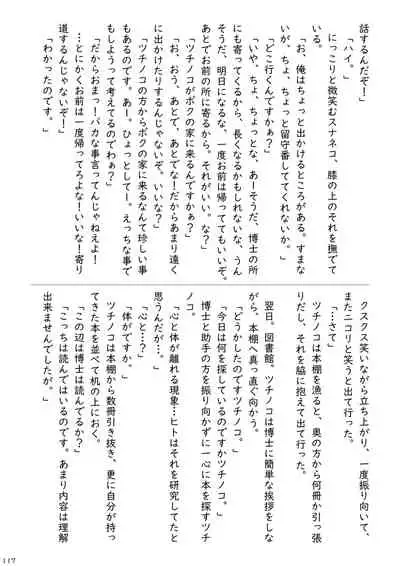 話するんだぞ！」
「ハイ。」
にっこりと微笑むスナネコ、膝の上のそれを撫でて
いる。
「お、俺はちょっと出かけるところがある。すまな
いが、ちょ、ちょっと留守番しててくれないか。」
「どこ行くんですかぁ？」
「いや、ちょ、ちょっとな、あーそうだ、博士の所
にも寄ってくるから、長くなるかもしれないな、うん
そうだ、明日になるな、一度お前は帰っててもいいぞ。
あとでお前の所に寄るから。それがいい。な？」
「ツチノコがボクの家に来るんですかぁ？」
「お、おう、あとで、あとでな！だからあまり遠く
に出かけたりするんじゃないぞ。いいな？」
「ツチノコの方からボクの家に来るなんて珍しい事
もあるのです。あー。ひょっとしてー。えっちな事で
もしようって考えてるのでわぁ？」
「だからおまっ！バカな事言ってんじゃねえよ！
…とにかくお前は一度帰ってろよな！いいな！寄り
道するんじゃないぞ！」
「わかったのです。」
クスクス笑いながら立ち上がり、一度振り向いて、
またニコリと笑うと出て行った。
「……さて」
ツチノコは本棚を漁ると、奥の方から何冊か引っ張
りだし、それを脇に抱えて出て行った。
翌日。図書館。ツチノコは博士に簡単な挨拶をしな
がら、本棚へ真っ直ぐ向かう。
「どうかしたのですツチノコ。」
「今日は何を探しているのですかツチノコ。」
博士と助手の方を振り向かずに一心に本を探すツチ
ノコ。
「心と体が離れる現象…ヒトはそれを研究してたと
思うんだが…」
「心と…？」
「体がですか。」
ツチノコは本棚から数冊引き抜き、更に自分が持っ
てきた本を並べて机の上におく。
「この辺は博士は読んでるか？」
「こっちは読んではいるのです。あまり内容は理解
出来ませんでしたが。」
117